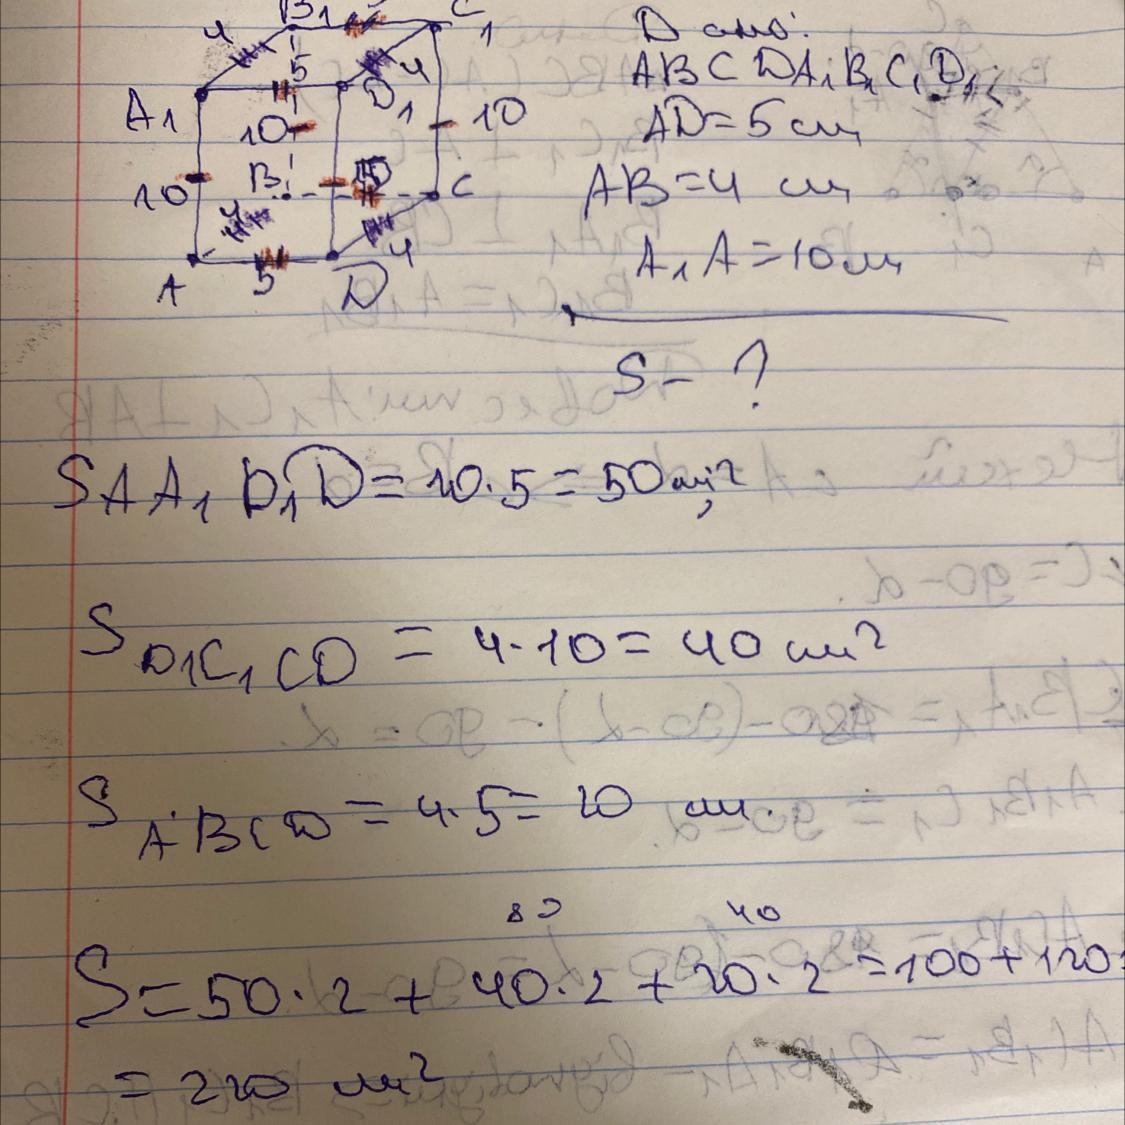 B1 5 C1
4
5 D1 4
A1
10 10
10 B 5 C
4
A 5 D 4
Dано:
ABCDA1B1C1D1
AD=5 см
AB=4 см
A1A=10см
S-?
SAA1D1D=10·5=50см²
SD1C1CD=4·10=40см²
SABCD=4·5=20 см.
80 40
S=50·2+40·2+20·2=100+120=
=220 см²